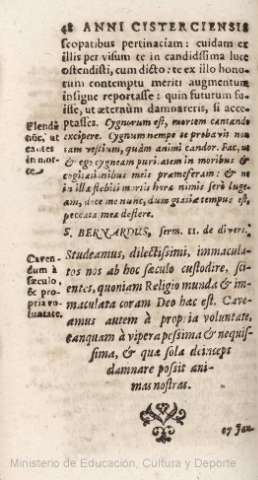 48 ANNI CISTERCIENSIS
scopatibus pertinaciam: cuidam ex
illis per visum te in candidissima luce
ostendisti, cum dicto: te ex illo hono-
rum contemptu meriti augmentum
insigne reportasse: quin futurum fu-
isse, ut æternùm damnareris, si acce-
ptasses. Cygnorum est, mortem cantando
excipere. Cygnum nempe te probavit non
tam vestium, quàm animi candor. Fac, ut
& ego cygneam puritatem in moribus &
cogitationibus meis præmeferam: & ne
in illa flebili mortis hora nimis serò luge-
am, dûte me nunc, dum gratiæ tempus est,
peccata mea deflere.
S. BERNARDUS, serm. 11. de divers.
Studeamus, dilectissimi, immacula-
tos nos ab hoc sæculo custodire, sci-
entes, quoniam Religio munda & im-
maculata coram Deo hæc est. Cave-
amus autem à propria voluntate,
tanquam à vipera pessima & nequis-
sima, & quæ sola deinceps
damnare possit ani-
mas nostras.
Caven-
dum à
sæculo,
& pro-
pria vo-
luntate.
17 Jan.
Ministerio de Educación, Cultura y Deporte